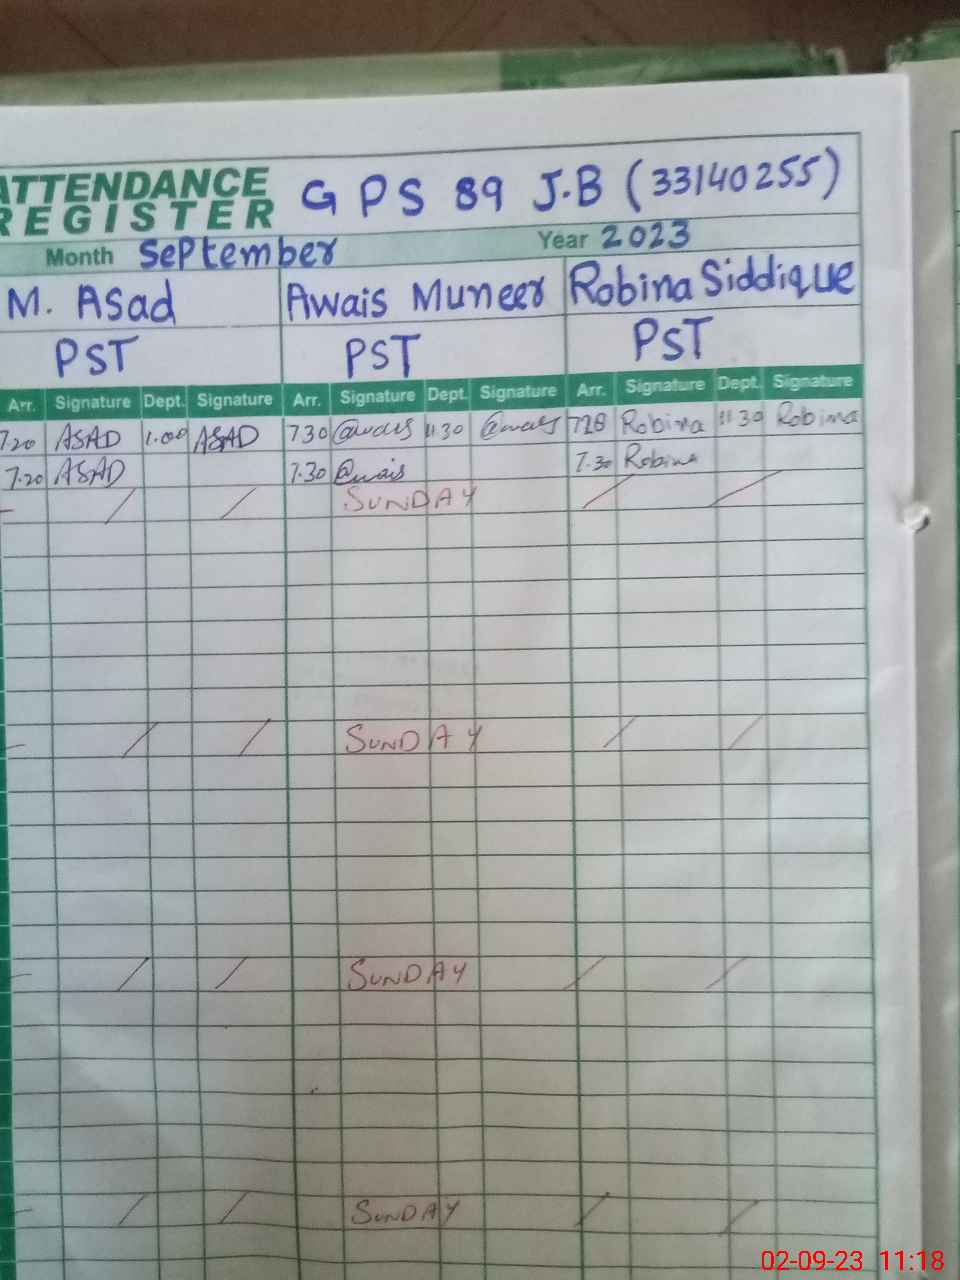 ATTENDANCE
REGISTER
G P S 89 J.B (33140255)
Month September Year 2023
M. ASad Awais Muneer Robina Siddique
PST PST PST
Arr. Signature Dept. Signature Arr. Signature Dept. Signature Arr. Signature Dept. Signature
720 ASAD 1.00 ASAD 730 @wais 11 30 @wais 728 Robina 11 30 Robina
7.20 ASAD 7.30 @wais 7.30 Robina
SUNDAY
SUNDAY
SUNDAY
SUNDAY
02-09-23 11:18